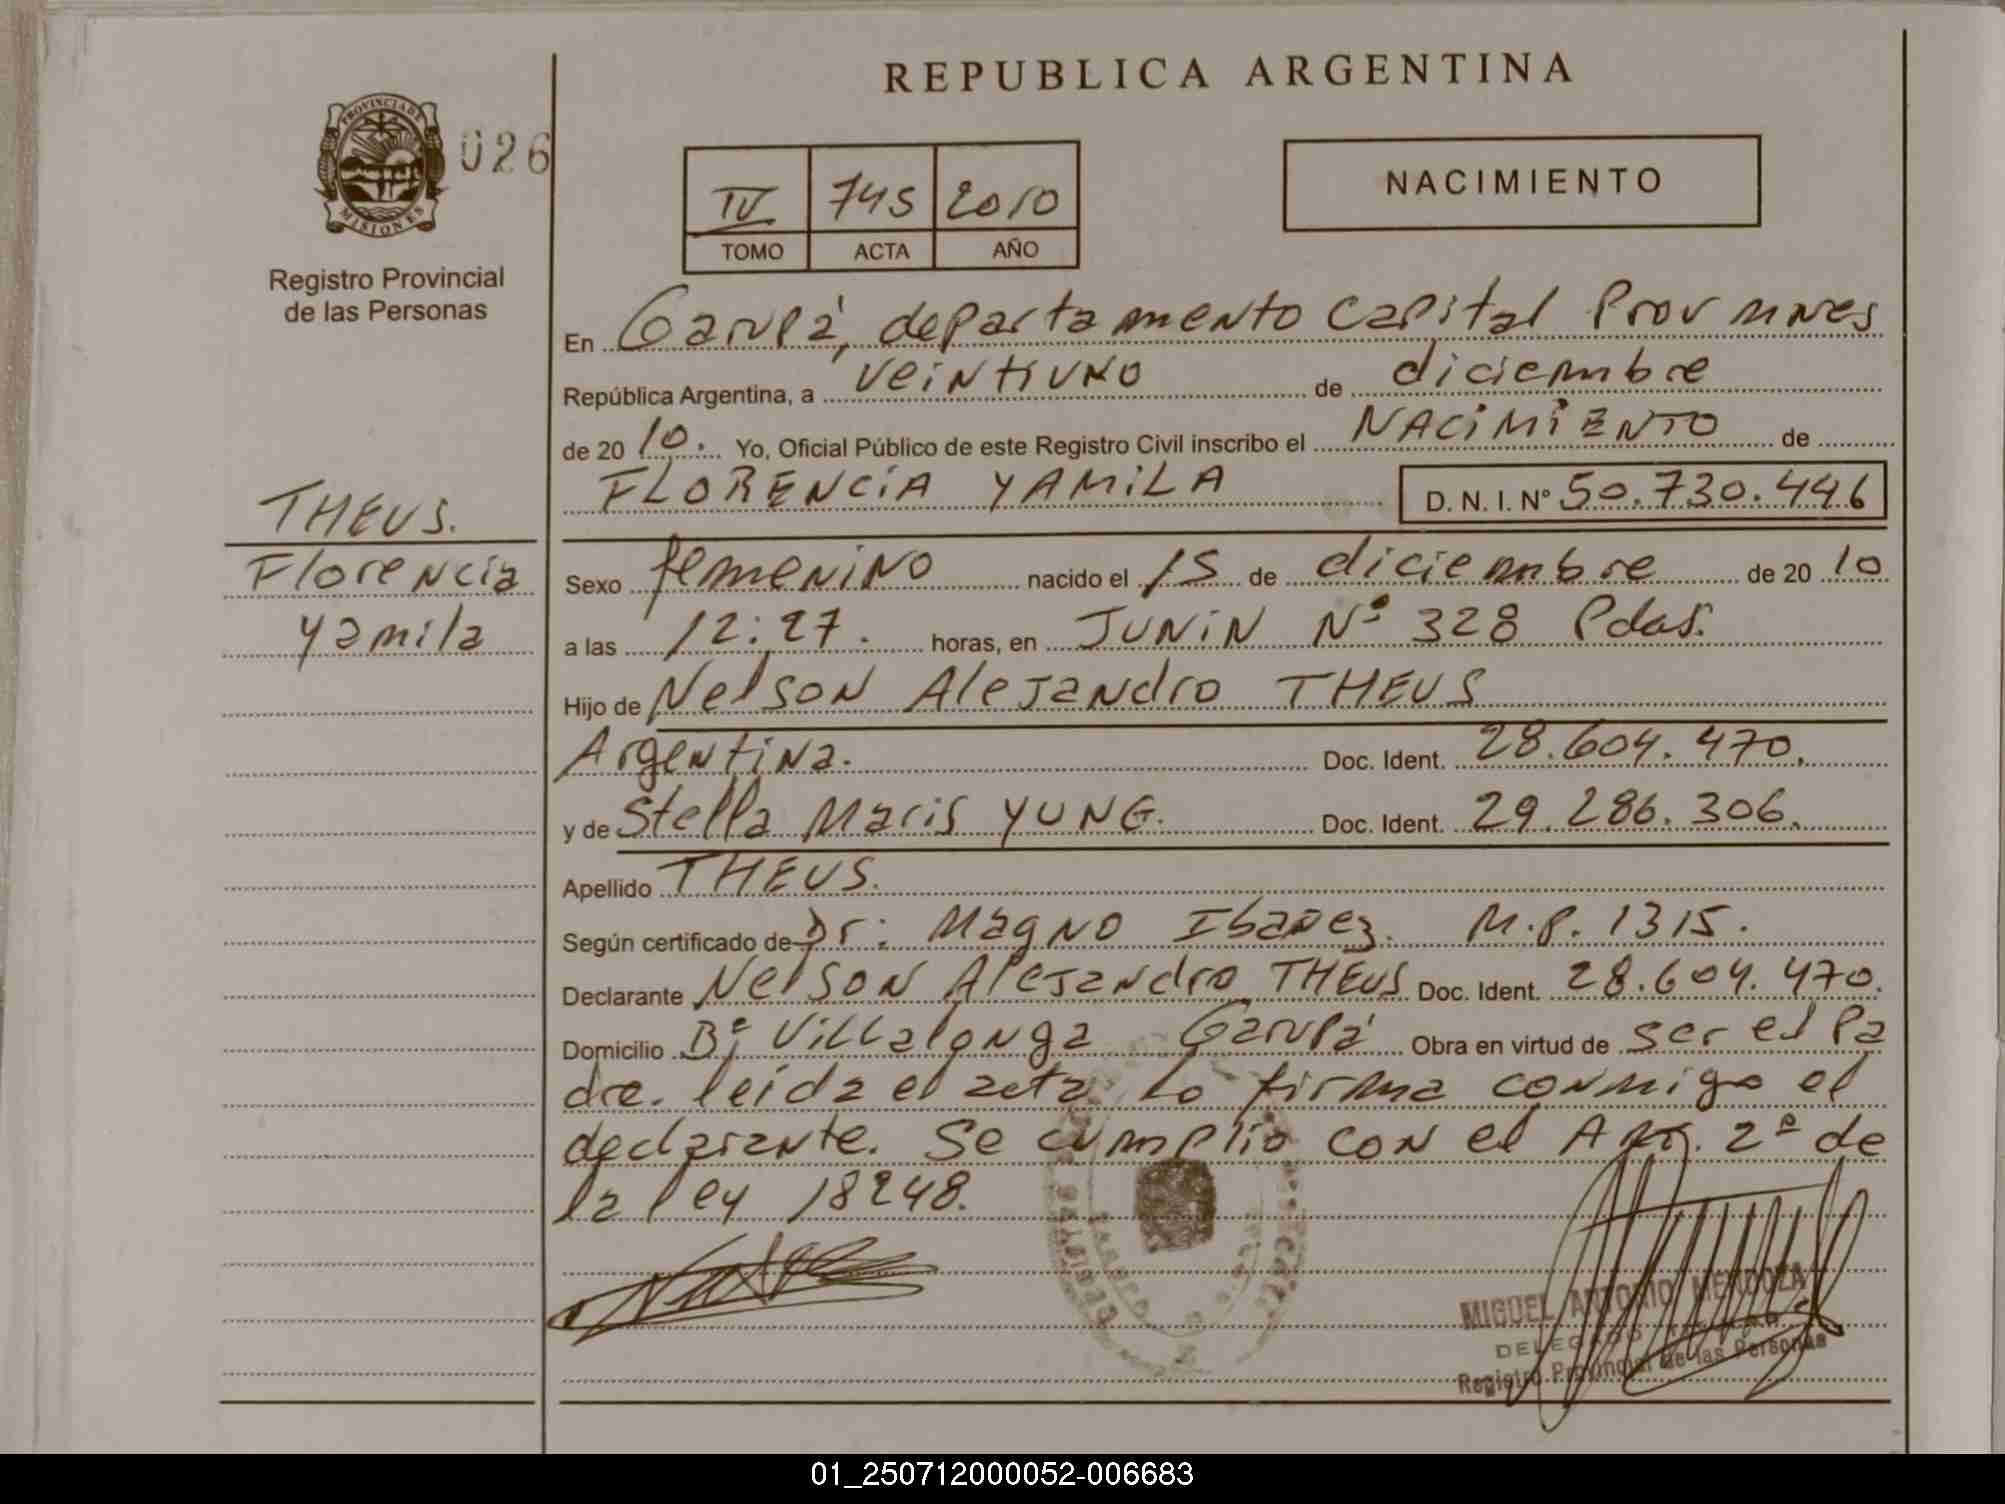 REPUBLICA ARGENTINA
PROVINCIA DE
MISIONES
026
Registro Provincial
de las Personas
IV 745 2010
TOMO ACTA AÑO
NACIMIENTO
En Garupá, departamento Capital Prov mnes
República Argentina, a veintiuno de diciembre
de 2010. Yo, Oficial Público de este Registro Civil inscribo el NACIMIENTO de
FLORENCIA YAMILA D. N. I. Nº 50.730.446
THEUS.
Florencia
Yamila
Sexo femenino nacido el 15 de diciembre de 2010
a las 12:27. horas, en JUNIN Nº 328 Pdas.
Hijo de Nelson Alejandro THEUS
Argentina. Doc. Ident. 28.604.470.
y de Stella Maris YUNG. Doc. Ident. 29.286.306.
Apellido THEUS.
Según certificado de Dr: Magno Ibañez. M.P. 1315.
Declarante Nelson Alejandro THEUS Doc. Ident. 28.604.470.
Domicilio Bº Villalonga Garupá Obra en virtud de ser el Pa
dre. leida el acta lo firma conmigo el
declarante. Se cumplio con el Art. 2º de
la ley 18248.
MIGUEL ANTONIO MENDOZA
DELEGADO
Registro Provincial de las Personas
01_250712000052-006683